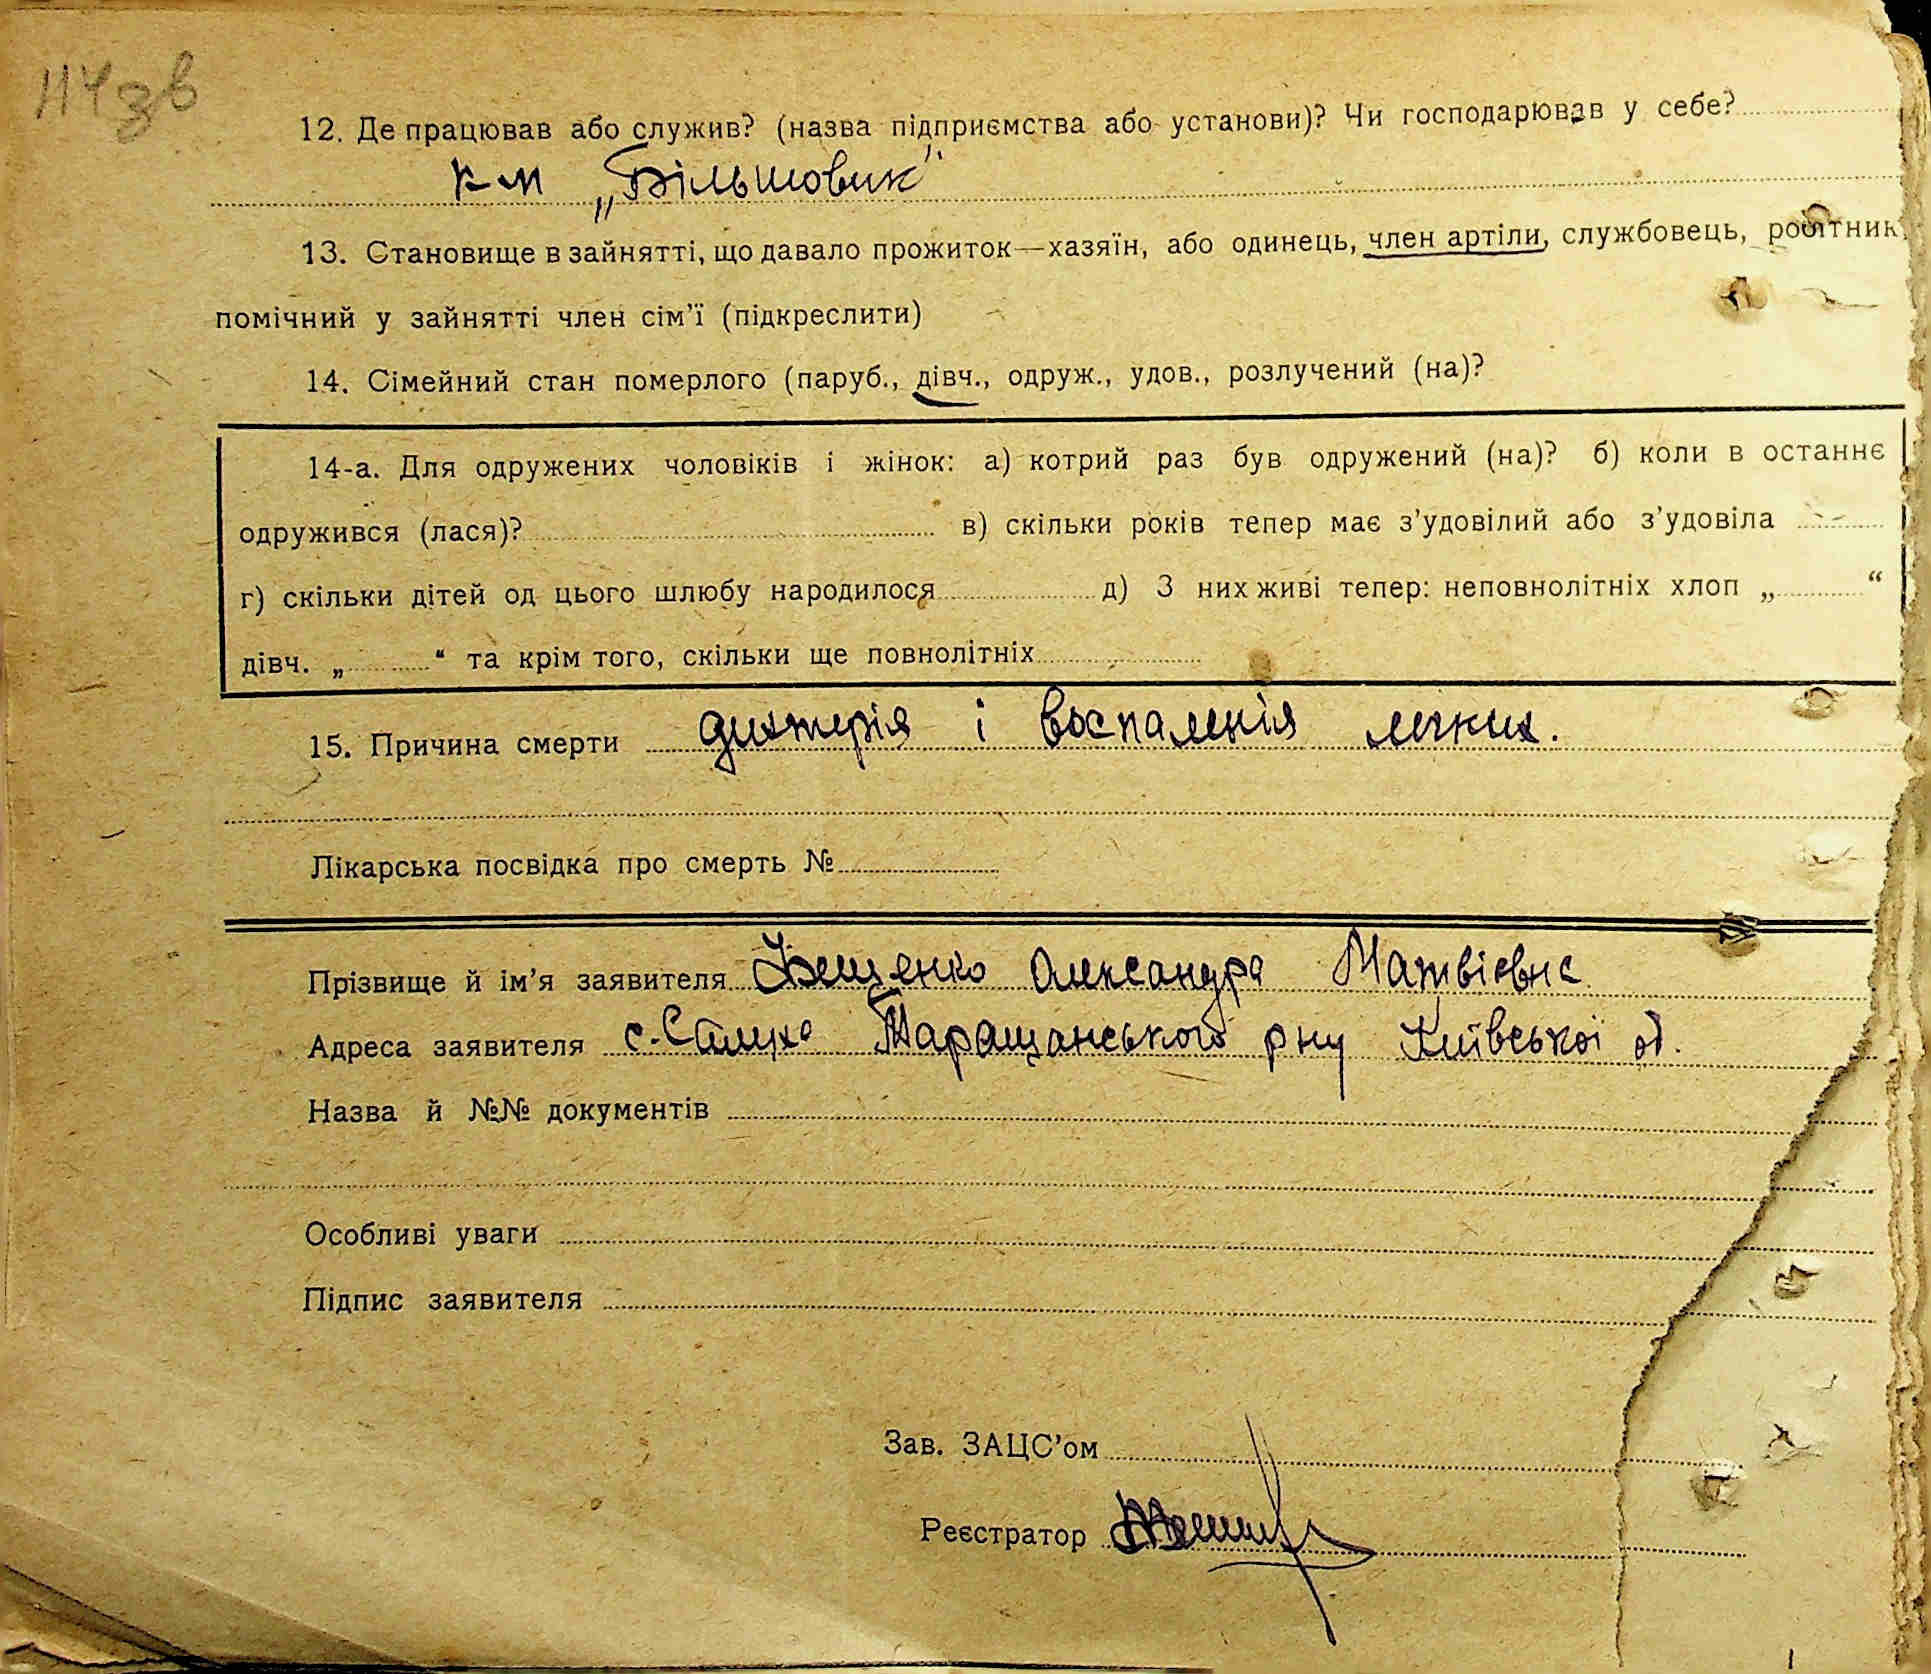 114зв
12. Де працював або служив? (назва підприємства або установи)? Чи господарював у себе?
к-м „Більшовик"
13. Становище в зайнятті, що давало прожиток—хазяїн, або одинець, член артіли, службовець, робітник,
помічний у зайнятті член сім'ї (підкреслити)
14. Сімейний стан померлого (паруб., дівч., одруж., удов., розлучений (на)?
14-а. Для одружених чоловіків і жінок: а) котрий раз був одружений (на)? б) коли в останнє
одружився (лася)? в) скільки років тепер має з'удовілий або з'удовіла
г) скільки дітей од цього шлюбу народилося д) З них живі тепер: неповнолітніх хлоп „ “
дівч. „ “ та крім того, скільки ще повнолітніх
15. Причина смерти дихтерія і воспаленія легких.
Лікарська посвідка про смерть №
Прізвище й ім'я заявителя Олександра Матвієвна
Адреса заявителя с. Таращанського рну Київської об.
Назва й №№ документів
Особливі уваги
Підпис заявителя
Зав. ЗАЦС'ом
Реєстратор